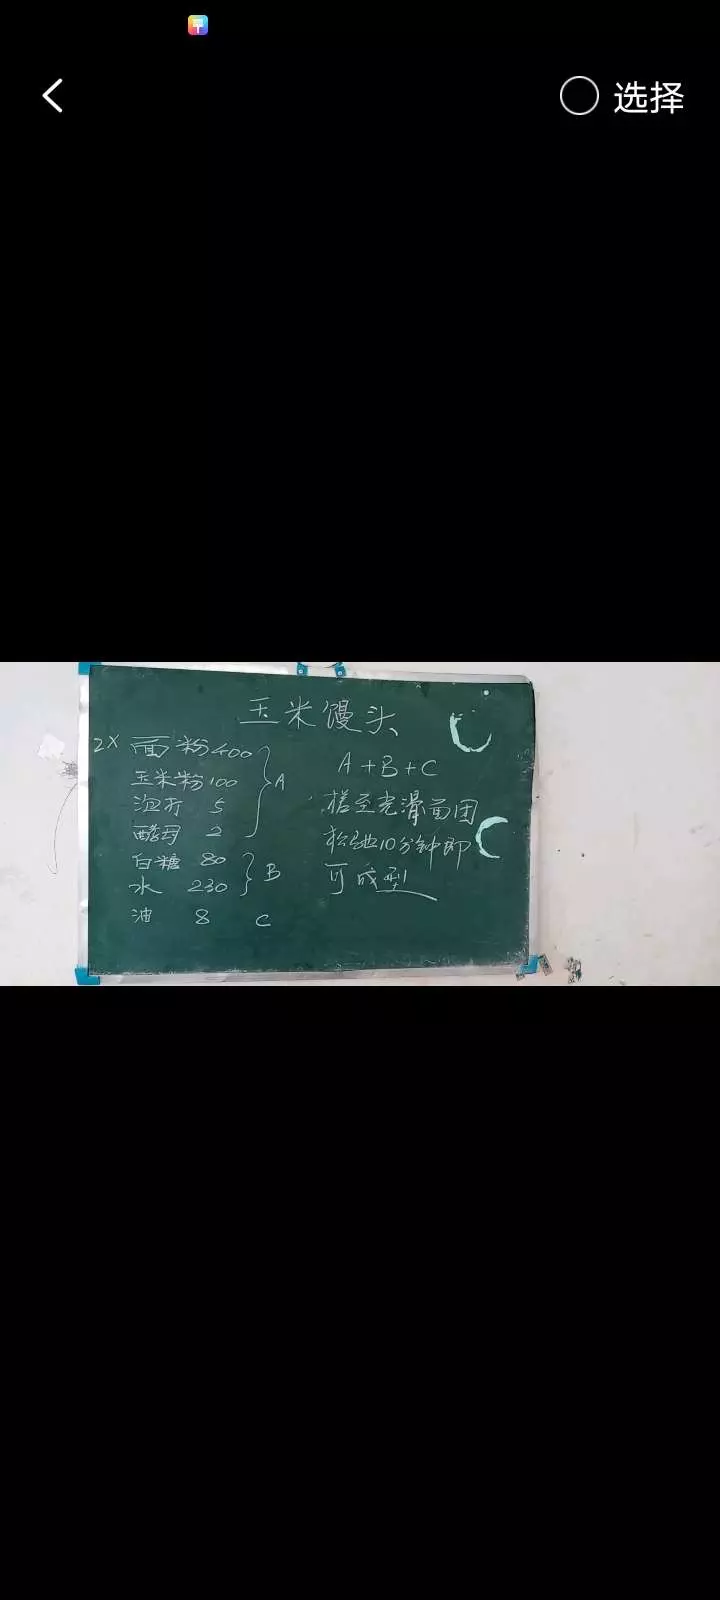 选择
玉米馒头
2X 面粉 400
玉米粉 100
泡打 5
酵母 2
A
白糖 80
水 230
B
油 8 C
A+B+C
搓至光滑面团
松弛10分钟即
可成型